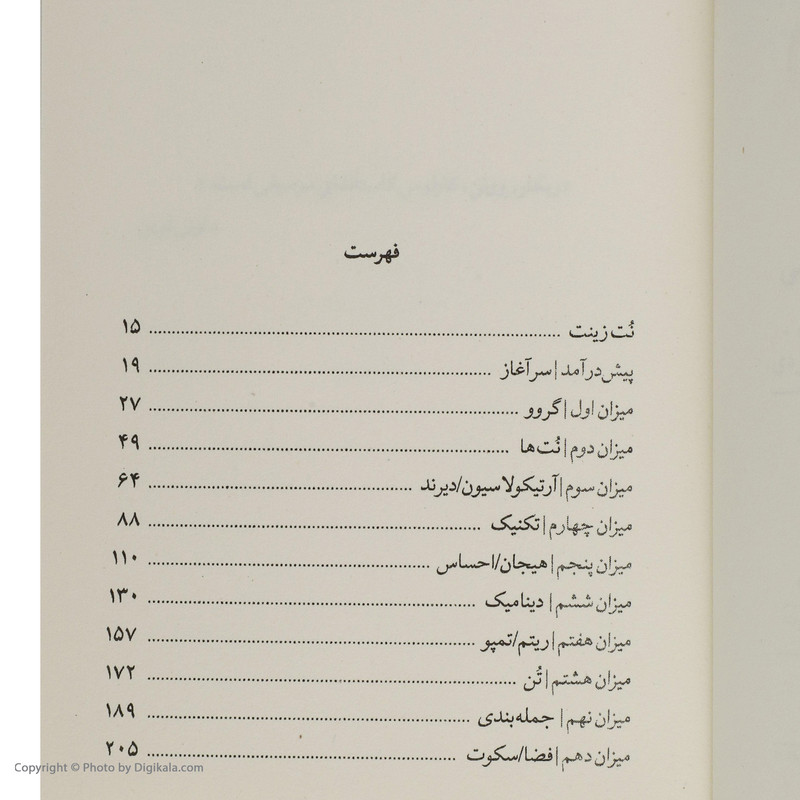 فهرست
نُت زینت ........ ۱۵
پیش‌درآمد | سرآغاز ........ ۱۹
میزان اول | گروو ........ ۲۷
میزان دوم | نُت‌ها ........ ۴۹
میزان سوم | آرتیکولاسیون/دیرند ........ ۶۴
میزان چهارم | تکنیک ........ ۸۸
میزان پنجم | هیجان/احساس ........ ۱۱۰
میزان ششم | دینامیک ........ ۱۳۰
میزان هفتم | ریتم/تمپو ........ ۱۵۷
میزان هشتم | تُن ........ ۱۷۲
میزان نهم | جمله‌بندی ........ ۱۸۹
میزان دهم | فضا/سکوت ........ ۲۰۵
Copyright © Photo by Digikala.com